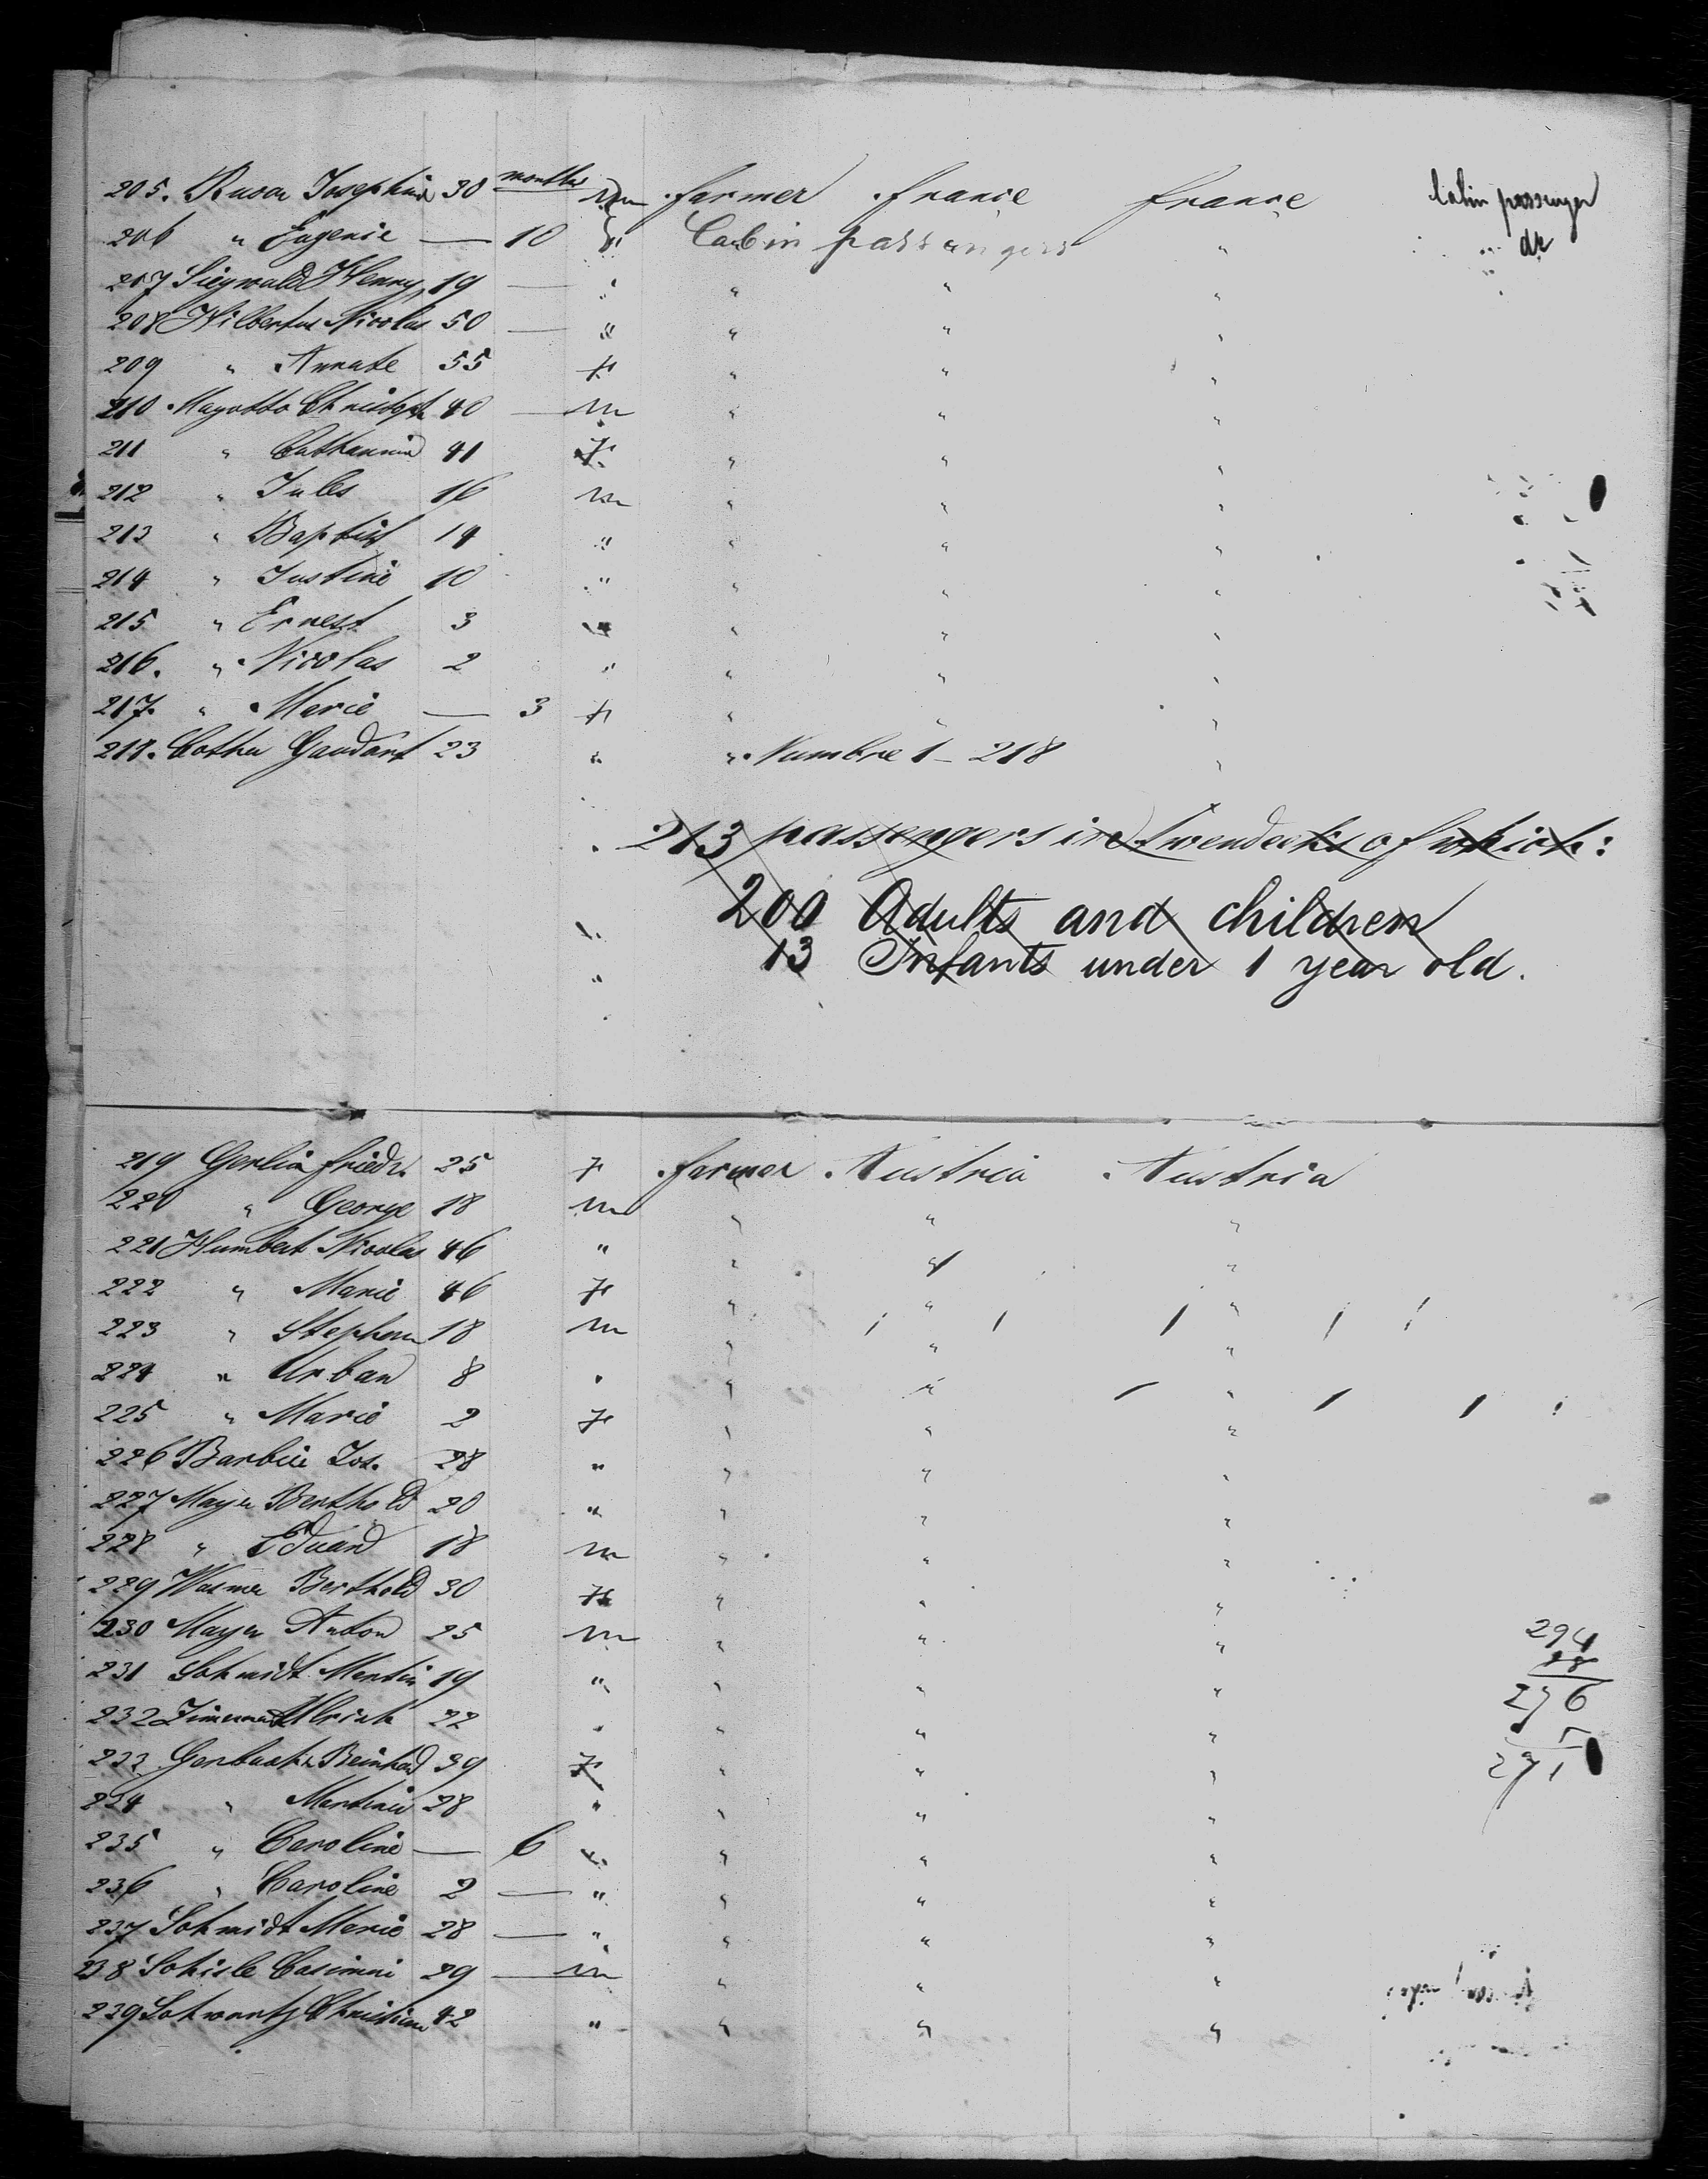 months
205. Rusca Josephine 30 m farmer france france Cabin passenger
206 " Eugenie — 10 " Cabin passangers " do
207 Siegwald Henry 19 — " " " "
208 Hilbertus Nicolas 50 — " " " "
209 " Annate 55 f " " "
210 Mayotto Christoph 40 — m " " "
211 " Catharina 41 f " " "
212 " Jules 16 m " " "
213 " Baptist 14 " " " "
214 " Justine 10 " " " "
215 " Ernest 3 " " " "
216. " Nicolas 2 " " " "
217. " Marie — 3 f " " "
218. Cothu Gaudart 23 " " Numbre 1 - 218 "
213 passengers in twendecks of which:
200 Adults and children
13 Infants under 1 year old.
219 Gerlin friedr. 25 f farmer Austria Austria
220 " George 18 m " " "
221 Humbert Nicolas 46 " " " "
222 " Marie 46 f " " "
223 " Stephan 18 m " " "
224 " Urban 8 " " " "
225 " Marie 2 f " " "
226 Barbiei Jos. 28 " " " "
227 Mayer Berthold 20 " " " "
228 " Eduard 18 m " " "
229 Wasmer Berthold 30 f " " "
230 Mayer Anton 25 m " " " 294
231 Schmidt Martin 19 " " " " 18
232 Zimerman Ulrich 22 " " " " 276
233 Gerbach Reinhard 39 f " " " 5
234 " Martinie 28 " " " " 271
235 " Caroline — 6 " " " "
236 " Caroline 2 — " " " "
237 Schmidt Marie 28 — " " " "
238 Schisle Casimir 29 — m " " "
239 Schwartz Christian 42 " " " "